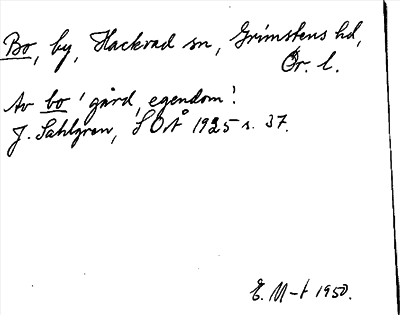 Bo, by, Hackvad sn, Grimstens hd,
Ör. l.
Av bo 'gård, egendom'.
J. Sahlgren, SOÅ 1925 s. 37.
E. M-t 1950.